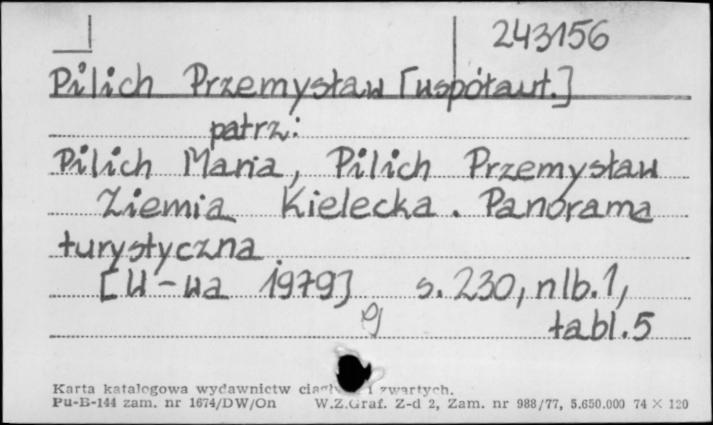 243156
Pilich Przemysław [współaut.]
patrz:
Pilich Maria, Pilich Przemysław
Ziemia Kielecka. Panorama
turystyczna
[W-wa 1979] s. 230, nlb. 1,
tabl. 5
Karta katalogowa wydawnictw i zwartych.
Pu-B-144 zam. nr 1674/DW/On W.Z.Graf. Z-d 2, Zam. nr 988/77, 5.650.000 74 × 120